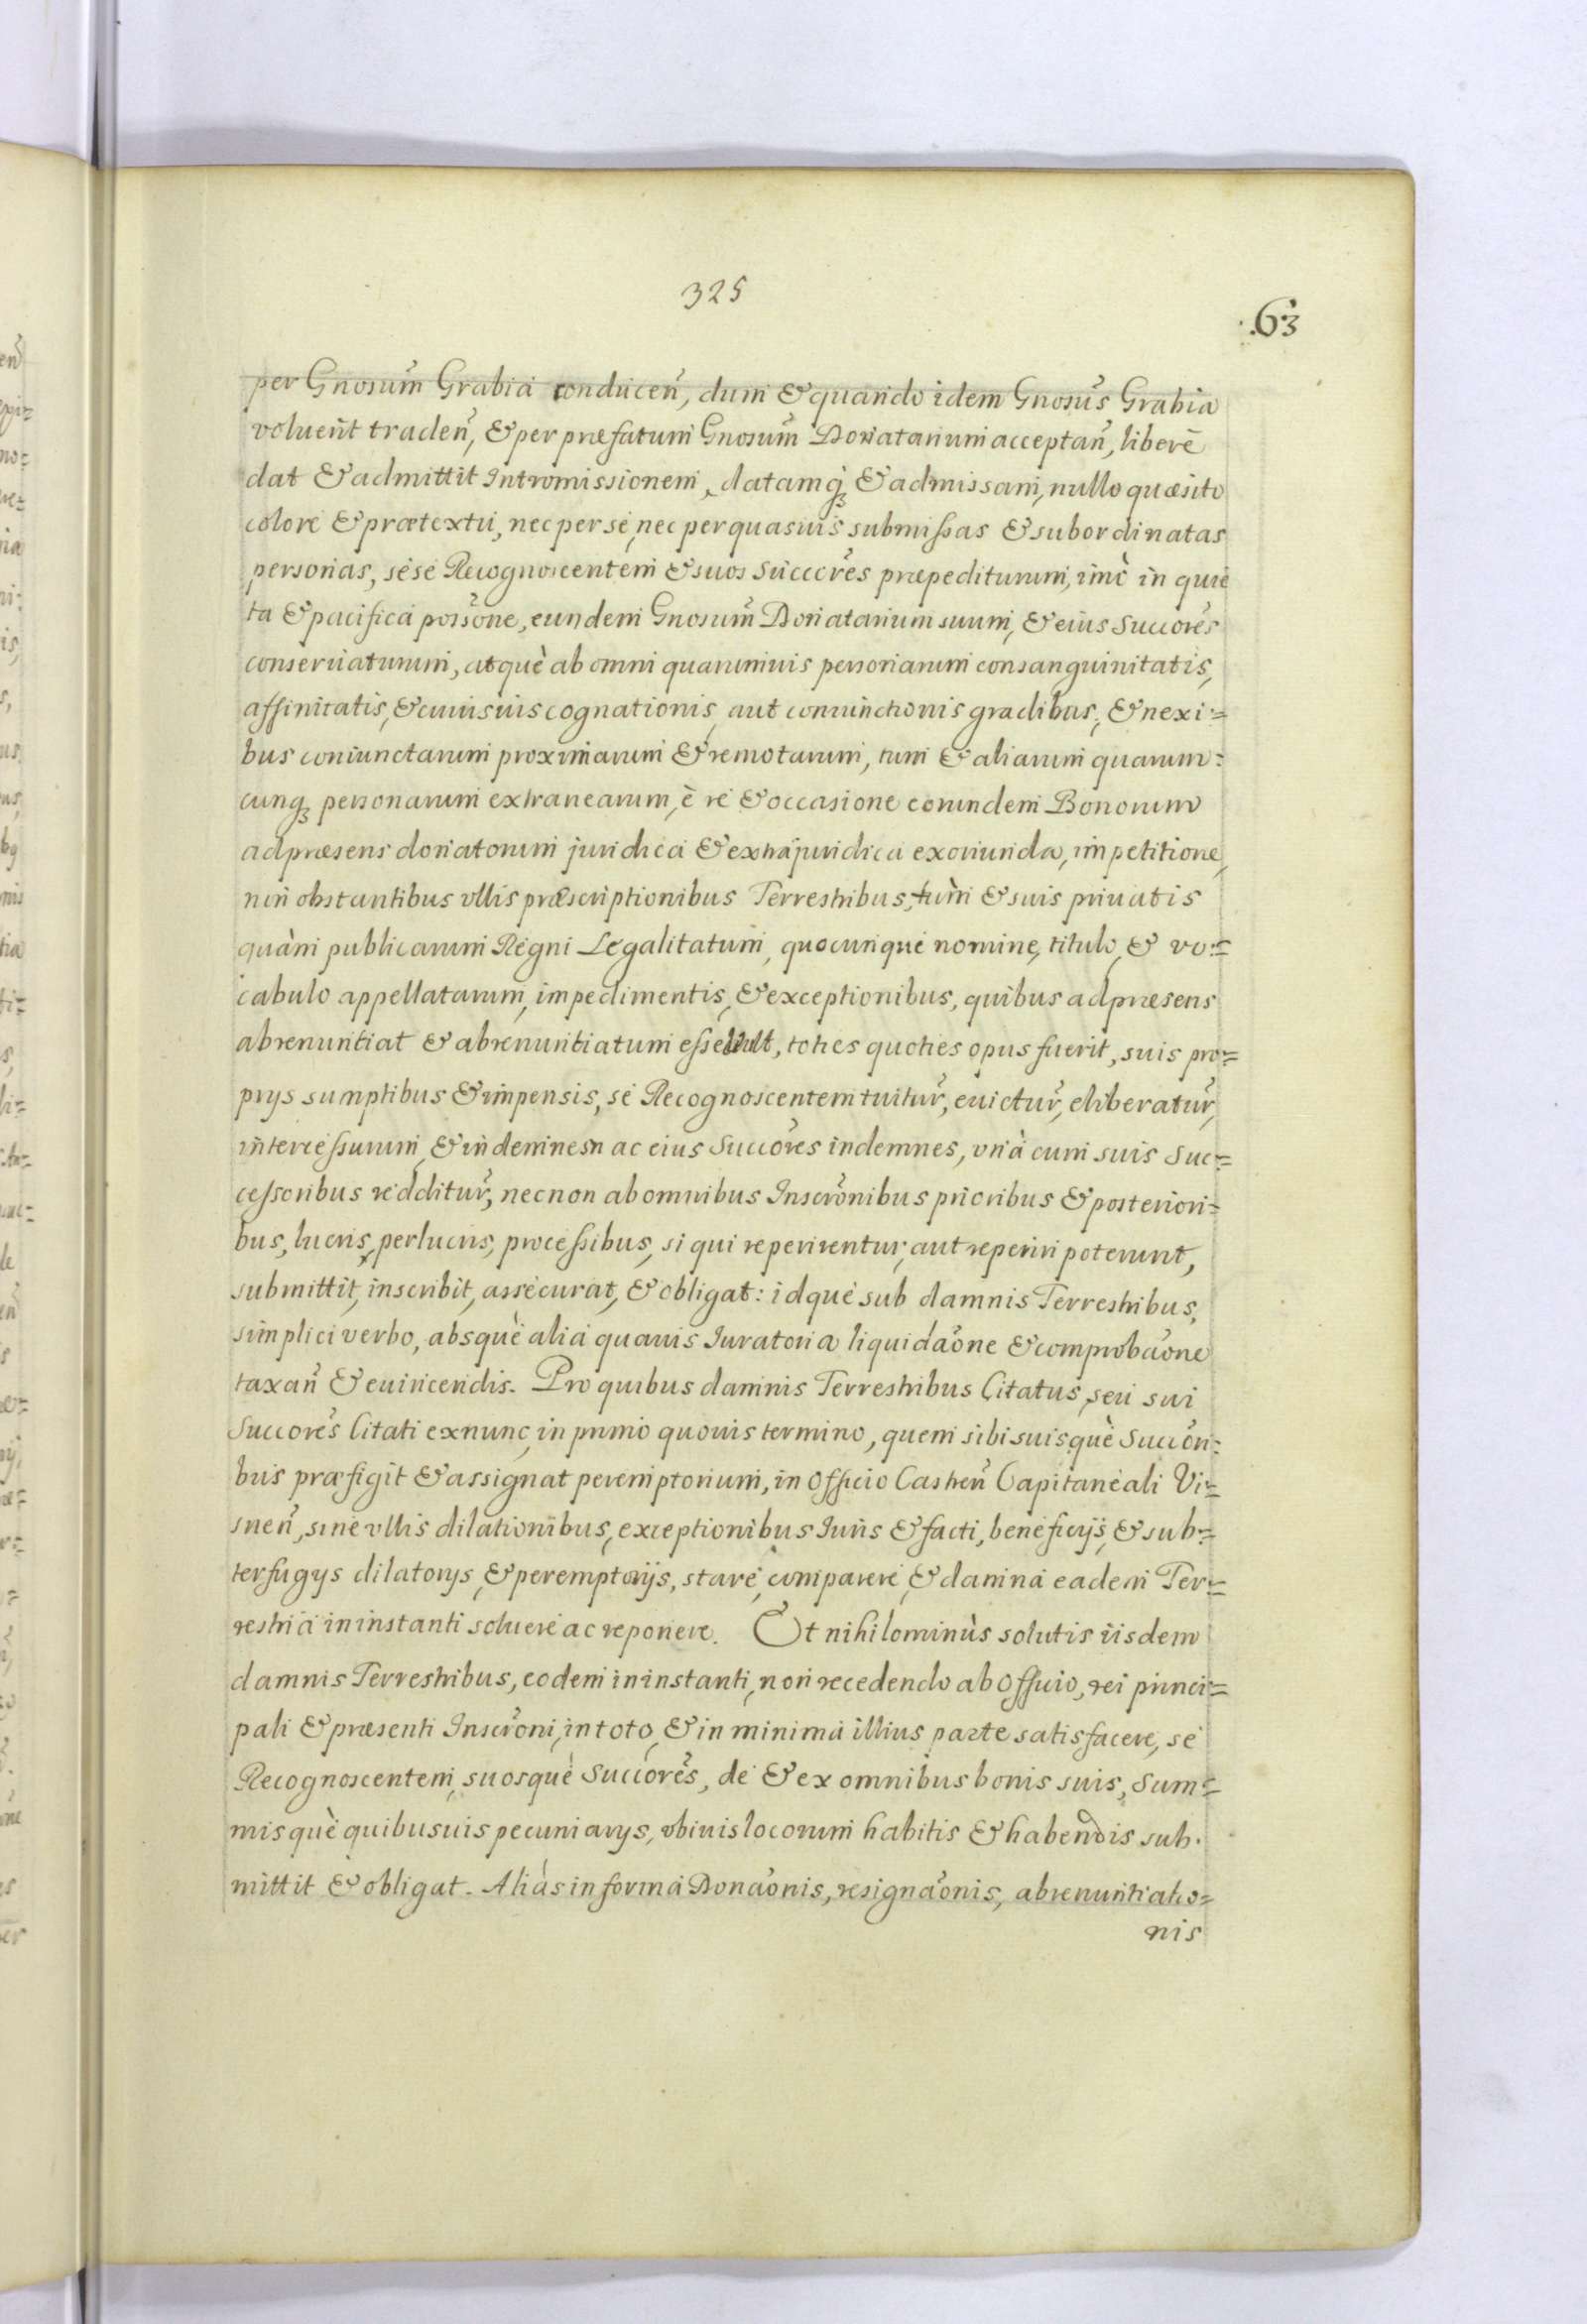 325
63
per Gnosum̃ Grabia conducen̄, dum & quando idem Gnosus̃ Grabia
voluerit traden̄, & per præfatum Gnosum̃ Donatarium acceptan̄, liberè
dat & admittit Intromissionem, datamq́ꝫ & admissam, nullo quæsito
colore & prætextu, nec per se, nec per quasuis submissas & subordinatas
personas, sese Recognoscentem & suos Succores̃ præpediturum, imò in quie
ta & pacifica possõne, eundem Gnosum̃ Donatarium suum, & eius Succores̃
conseruaturum, atquè ab omni quarumuis personarum consanguinitatis,
affinitatis, & cuiusuis cognationis, aut coniunctionis gradibus, & nexi=
bus coniunctarum proximarum & remotarum, tum & aliarum quarum=
cunqꝫ personarum extranearum, è re & occasione eorundem Bonorum
ad præsens donatorum juridica & extrajuridica exoriunda, impetitione,
nin obstantibus vllis præscriptionibus Terrestribus, tum & suis priuatis
quàm publicarum Regni Legalitatum, quocunque nomine, titulo, & vo=
cabulo appellatarum, impedimentis, & exceptionibus, quibus ad præsens
abrenuntiat & abrenuntiatum esse vult, toties quoties opus fuerit, suis pro=
prys sumptibus & impensis, se Recognoscentem tuitur̃, euictur̃, eliberatur̃,
intercessurum, & indemnem ac eius Succores̃ indemnes, vnà cum suis Suc=
cessoribus redditur̃, necnon ab omnibus Inscrõnibus prioribus & posteriori=
bus, lucris, perlucris, processibus, si qui reperirentur, aut reperiri poterunt,
submittit, inscribit, assecurat, & obligat: idque sub damnis Terrestribus,
simplici verbo, absquè alia quauis Iuratoria liquidaõne & comprobaõne
taxan̄ & euincendis. Pro quibus damnis Terrestribus Citatus, seu sui
Succores̃ Citati exnunc, in primo quouis termino, quem sibi suisquè Succori=
bus præfigit & assignat peremptorium, in Officio Castren̄ Capitaneali Vi=
snen̄, sine vllis dilationibus, exceptionibus Iuris & facti, beneficijs, & sub=
terfugys dilatorys, & peremptorijs, stare, comparere, & damna eadem Ter=
restria in instanti soluere ac reponere. Et nihilominùs solutis iisdem
damnis Terrestribus, eodem in instanti, non recedendo ab Officio, rei princi=
pali & præsenti Inscrõni, in toto, & in minima illius parte satisfacere, se
Recognoscentem, suosquè Succores̃, de & ex omnibus bonis suis, Sum=
misquè quibusuis pecuniarys, vbiuis locorum habitis & habendis sub.
mittit & obligat. Aliàs in forma Donaõnis, resignaõnis, abrenuntiatio=
nis